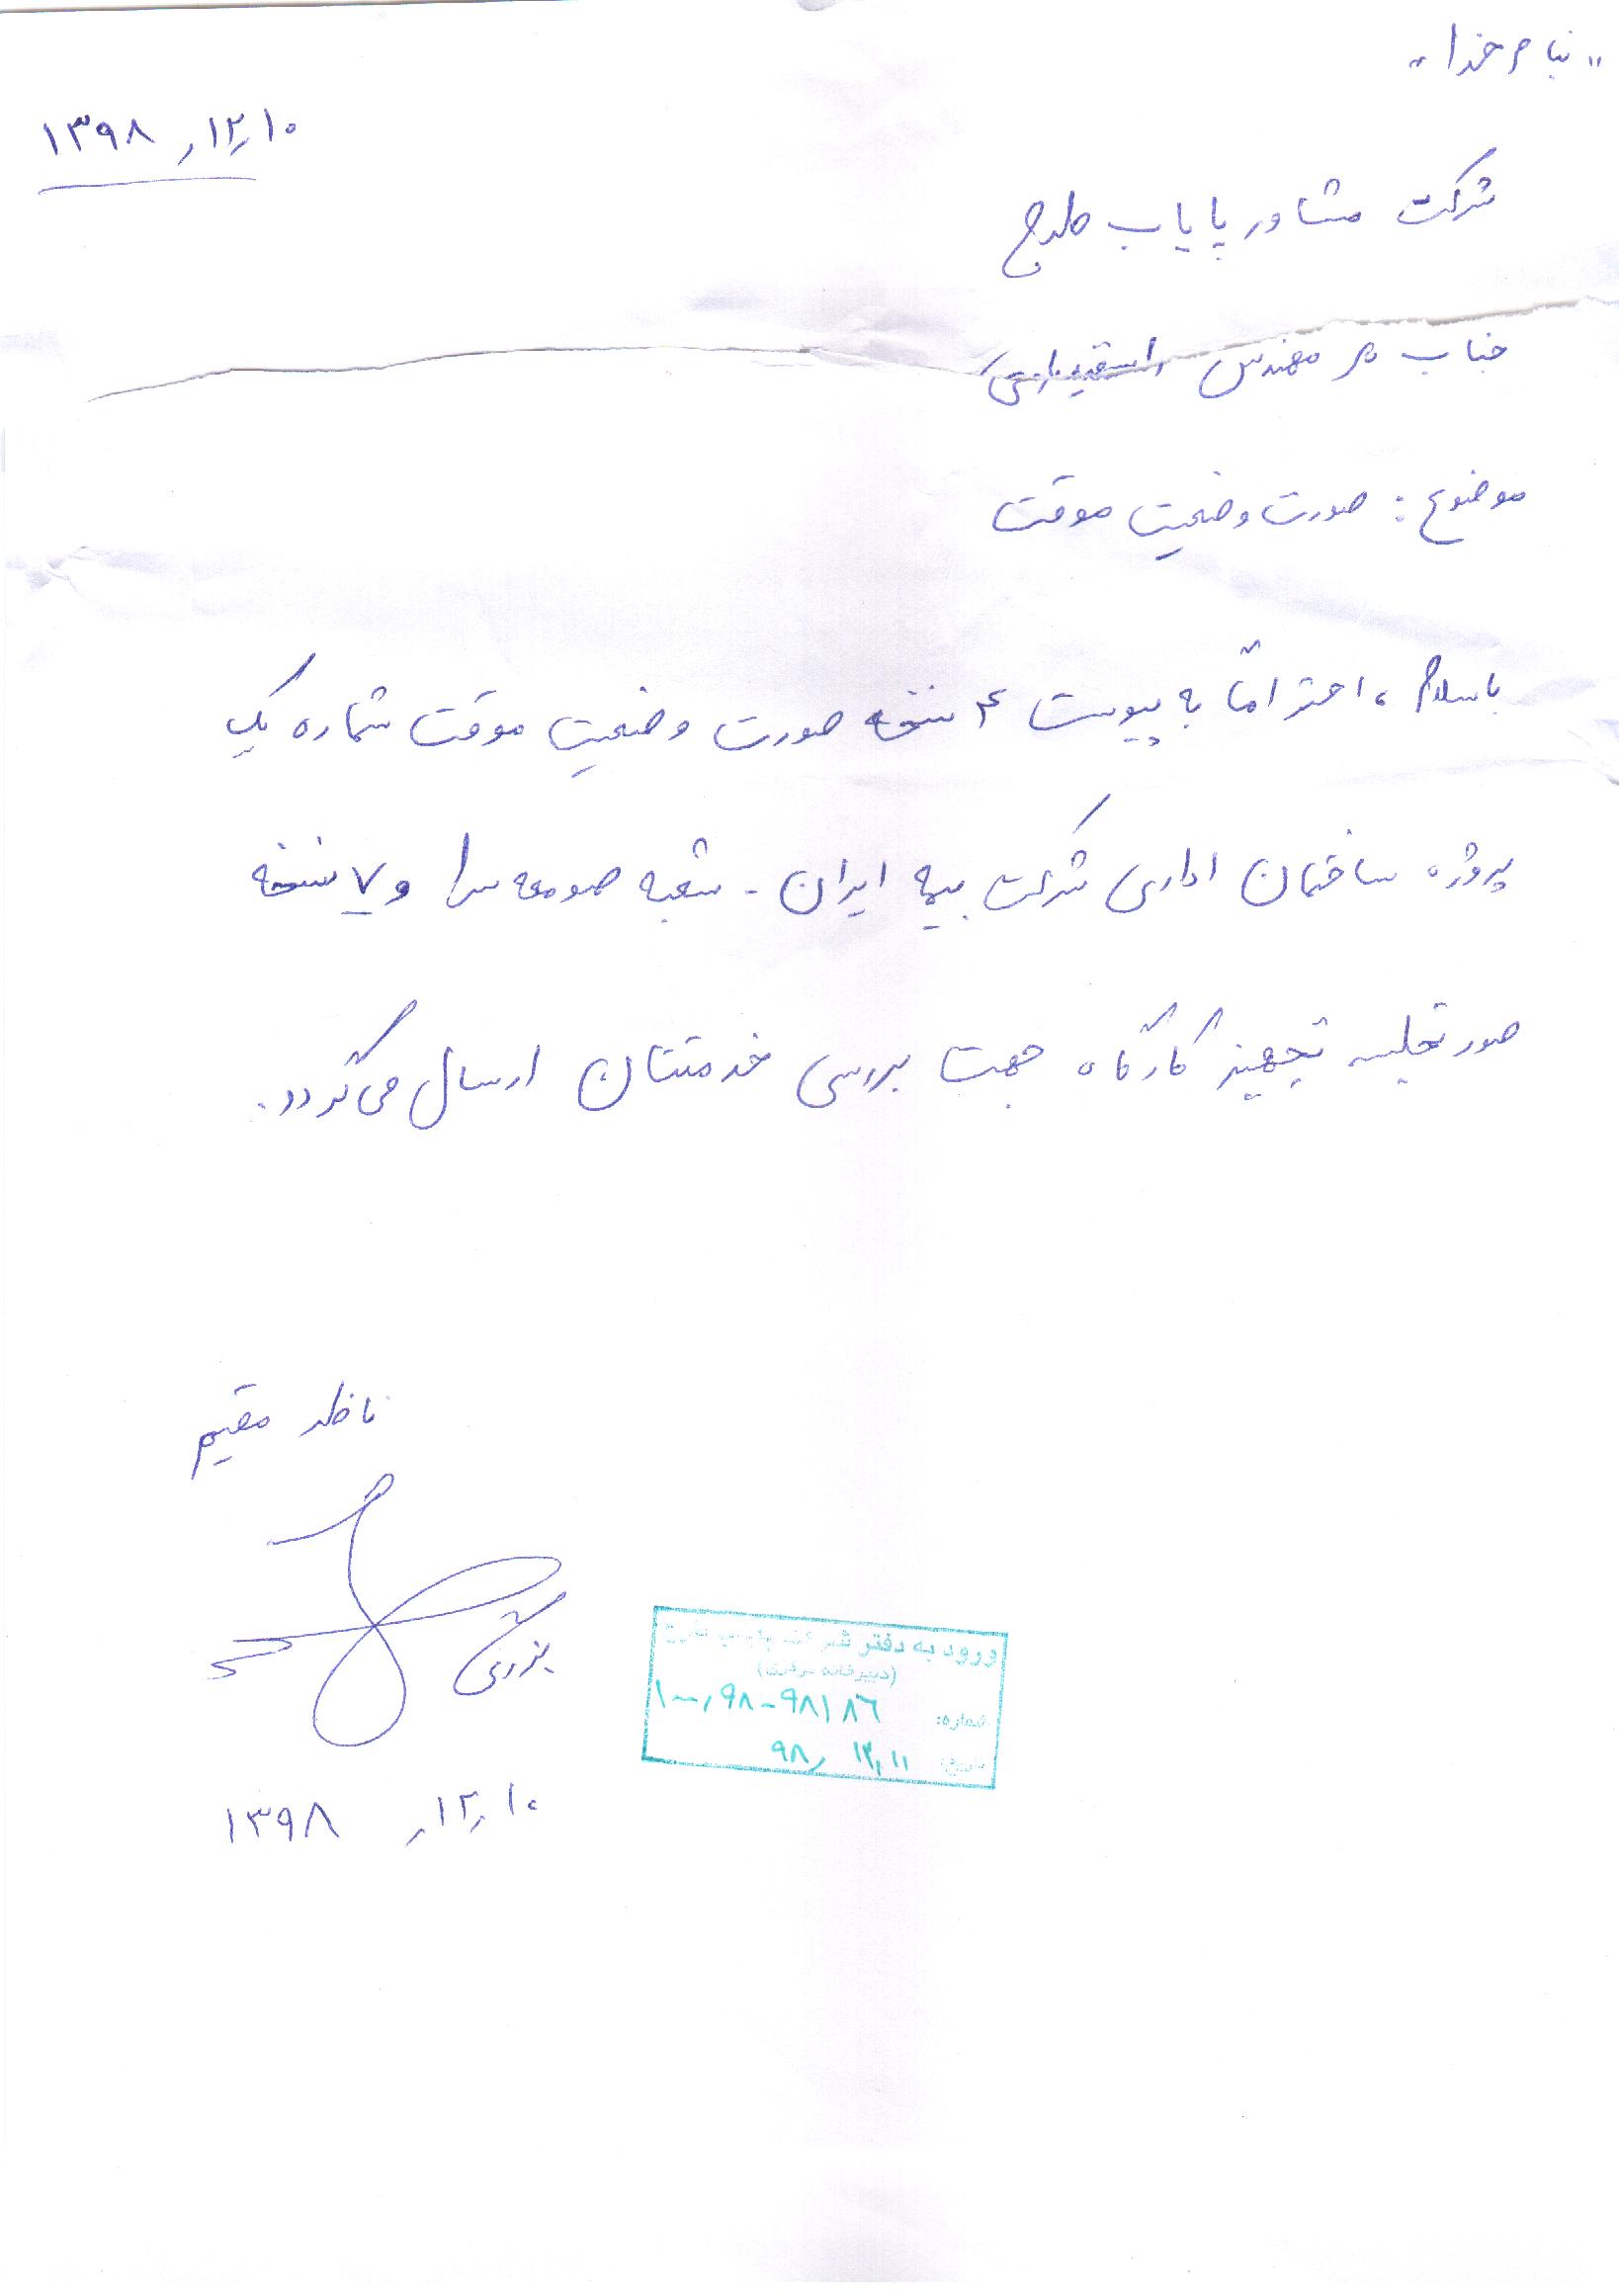 "بنام خدا"
۱۳۹۸٫۱۲٫۱۰
شرکت مشاور پایاب طرح
جناب مهندس
موضوع: صورت وضعیت موقت
باسلام، احتراماً به پیوست ۴ نسخه صورت وضعیت موقت شماره یک
پروژه ساختمان اداری شرکت بیمه ایران - شعبه صومعه سرا و ۷ نسخه
صورتجلسه تجهیز کارگاه جهت بررسی خدمتتان ارسال می گردد.
ناظر مقیم
ورود به دفتر
(دبیرخانه مرکزی)
شماره: ۹۸۱۸۶-۱۰۰٫۹۸
تاریخ: ۹۸٫۱۲٫۱۱
۱۳۹۸٫۱۲٫۱۰